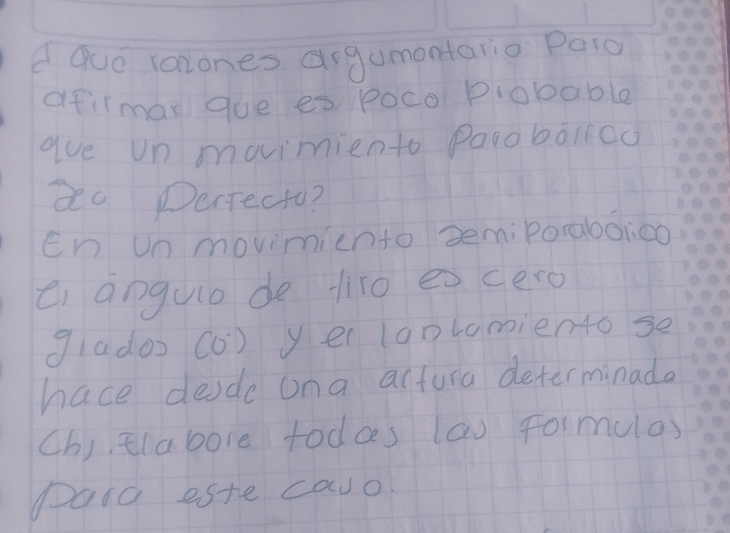 ¿ Qué razones argumentaria Para
afirmar que es Poco Probable
que un movimiento Parabólico
sea Perfecto?
En un movimiento semiparabólico
el ángulo de tiro es cero
grados (0°) y el lanzamiento se
hace desde una altura determinada
(h). Elabore todas las formulas
para este caso.